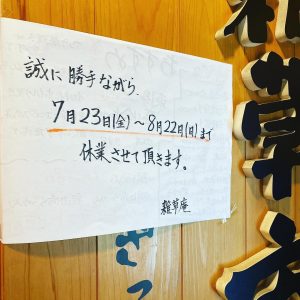 誠に勝手ながら、
7月23日(金)～8月22日(日)まで
休業させて頂きます。
雑草庵